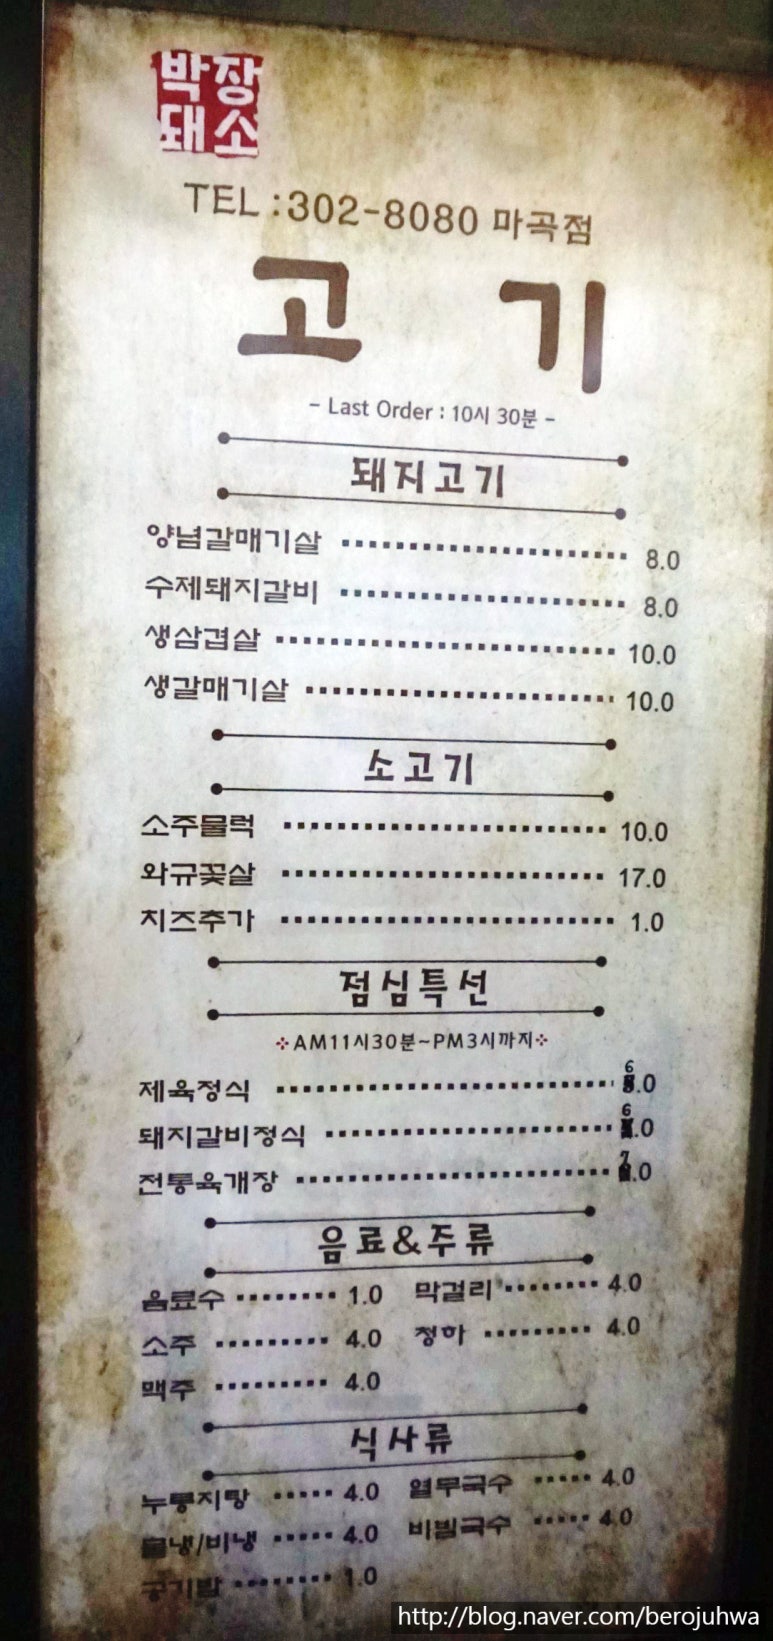 박장
돼소
TEL :302-8080 마곡점
고 기
- Last Order : 10시 30분 -
돼지고기
양념갈매기살 8.0
수제돼지갈비 8.0
생삼겹살 10.0
생갈매기살 10.0
소고기
소주물럭 10.0
와규꽃살 17.0
치즈추가 1.0
점심특선
AM11시30분~PM3시까지
제육정식 6.0
돼지갈비정식 6.0
전통육개장 7.0
음료&주류
음료수 1.0 막걸리 4.0
소주 4.0 청하 4.0
맥주 4.0
식사류
누룽지탕 4.0 열무국수 4.0
물냉/비냉 4.0 비빔국수 4.0
공기밥 1.0
http://blog.naver.com/berojuhwa